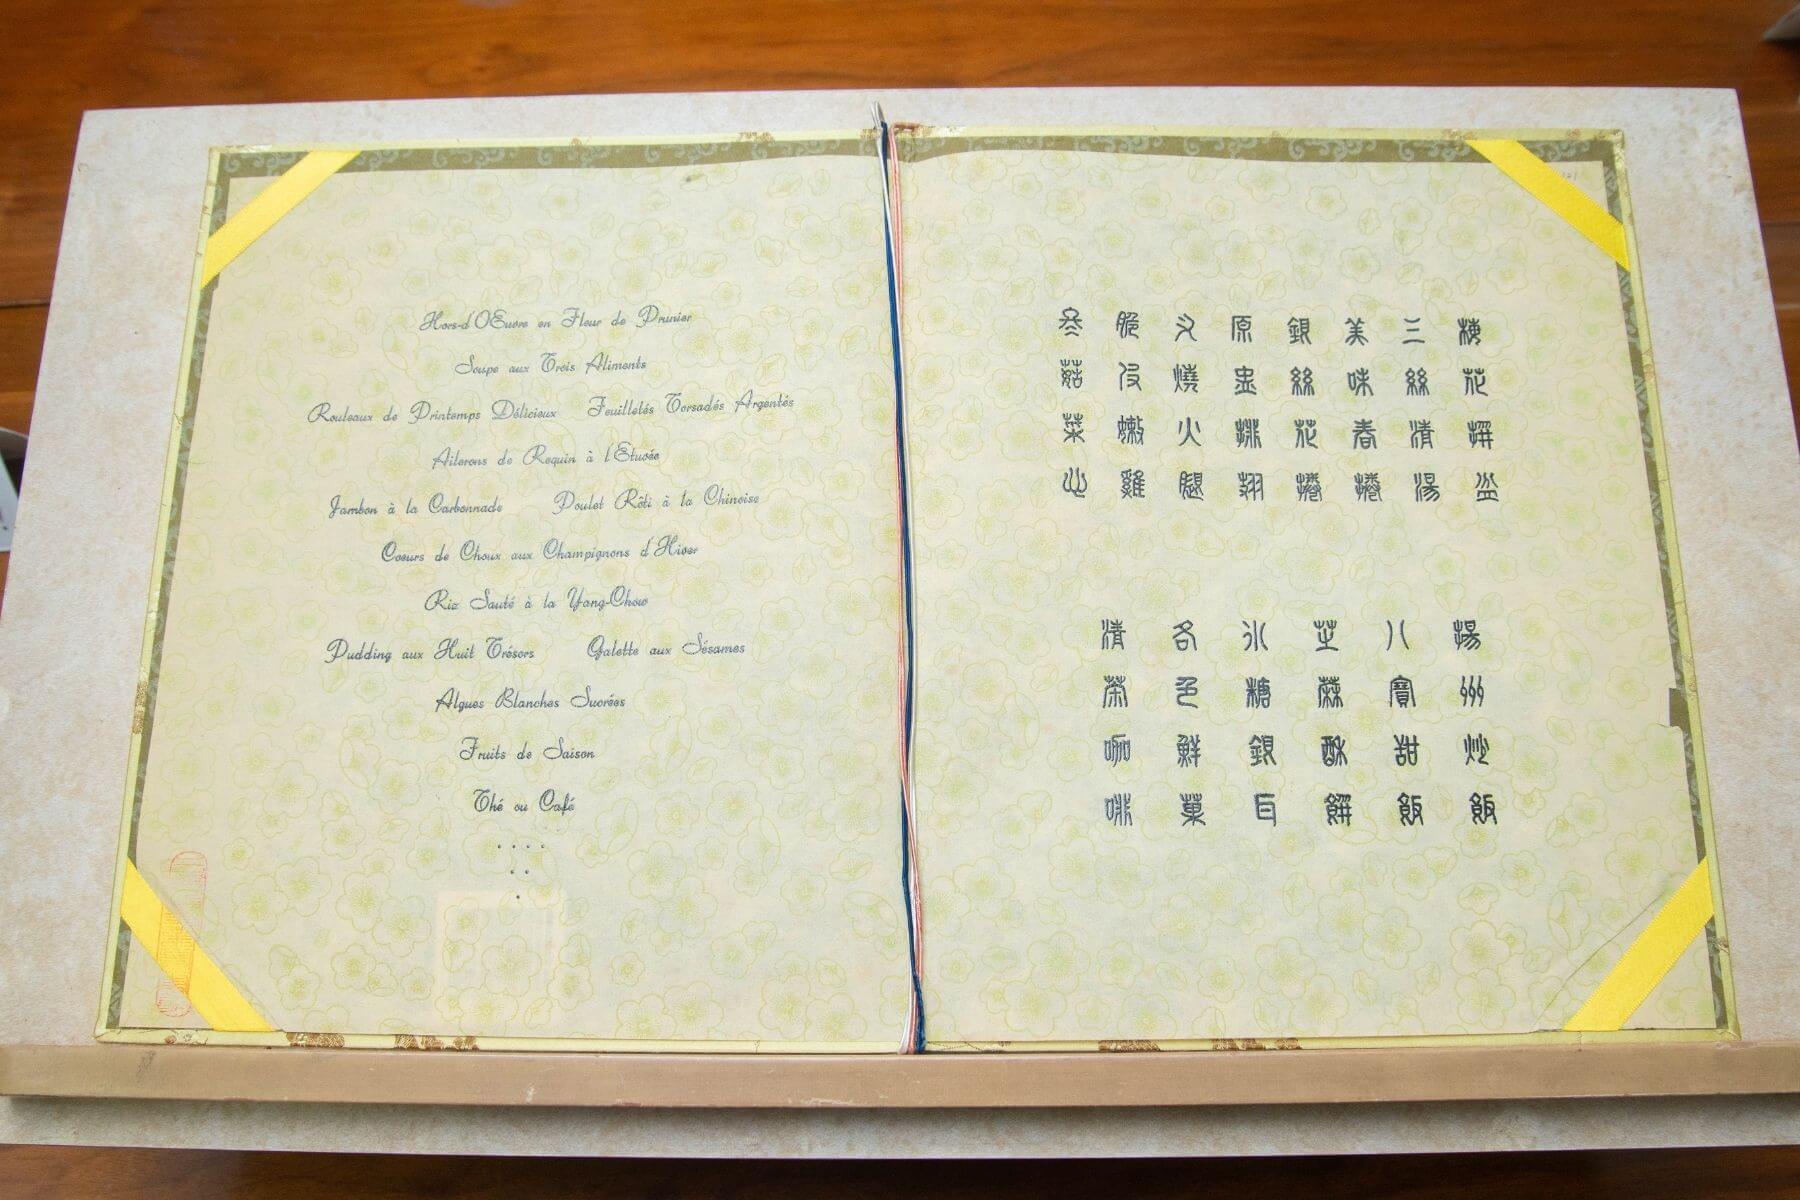 Hors-d'OEuvre en Fleur de Prunier
Soupe aux Trois Aliments
Rouleaux de Printemps Délicieux Feuilletés Torsadés Argentés
Ailerons de Requin à l'Etuvée
Jambon à la Carbonnade Poulet Rôti à la Chinoise
Coeurs de Choux aux Champignons d'Hiver
Riz Sauté à la Yang-Chow
Pudding aux Huit Trésors Galette aux Sésames
Algues Blanches Sucrées
Fruits de Saison
Thé ou Café
梅花拼盆
三絲清湯
美味春捲
銀絲花捲
原盅排翅
叉燒火腿
脆皮嫩雞
冬菇菜心
揚州炒飯
八寶甜飯
芝蔴酥餅
冰糖銀耳
各色鮮菓
清茶咖啡